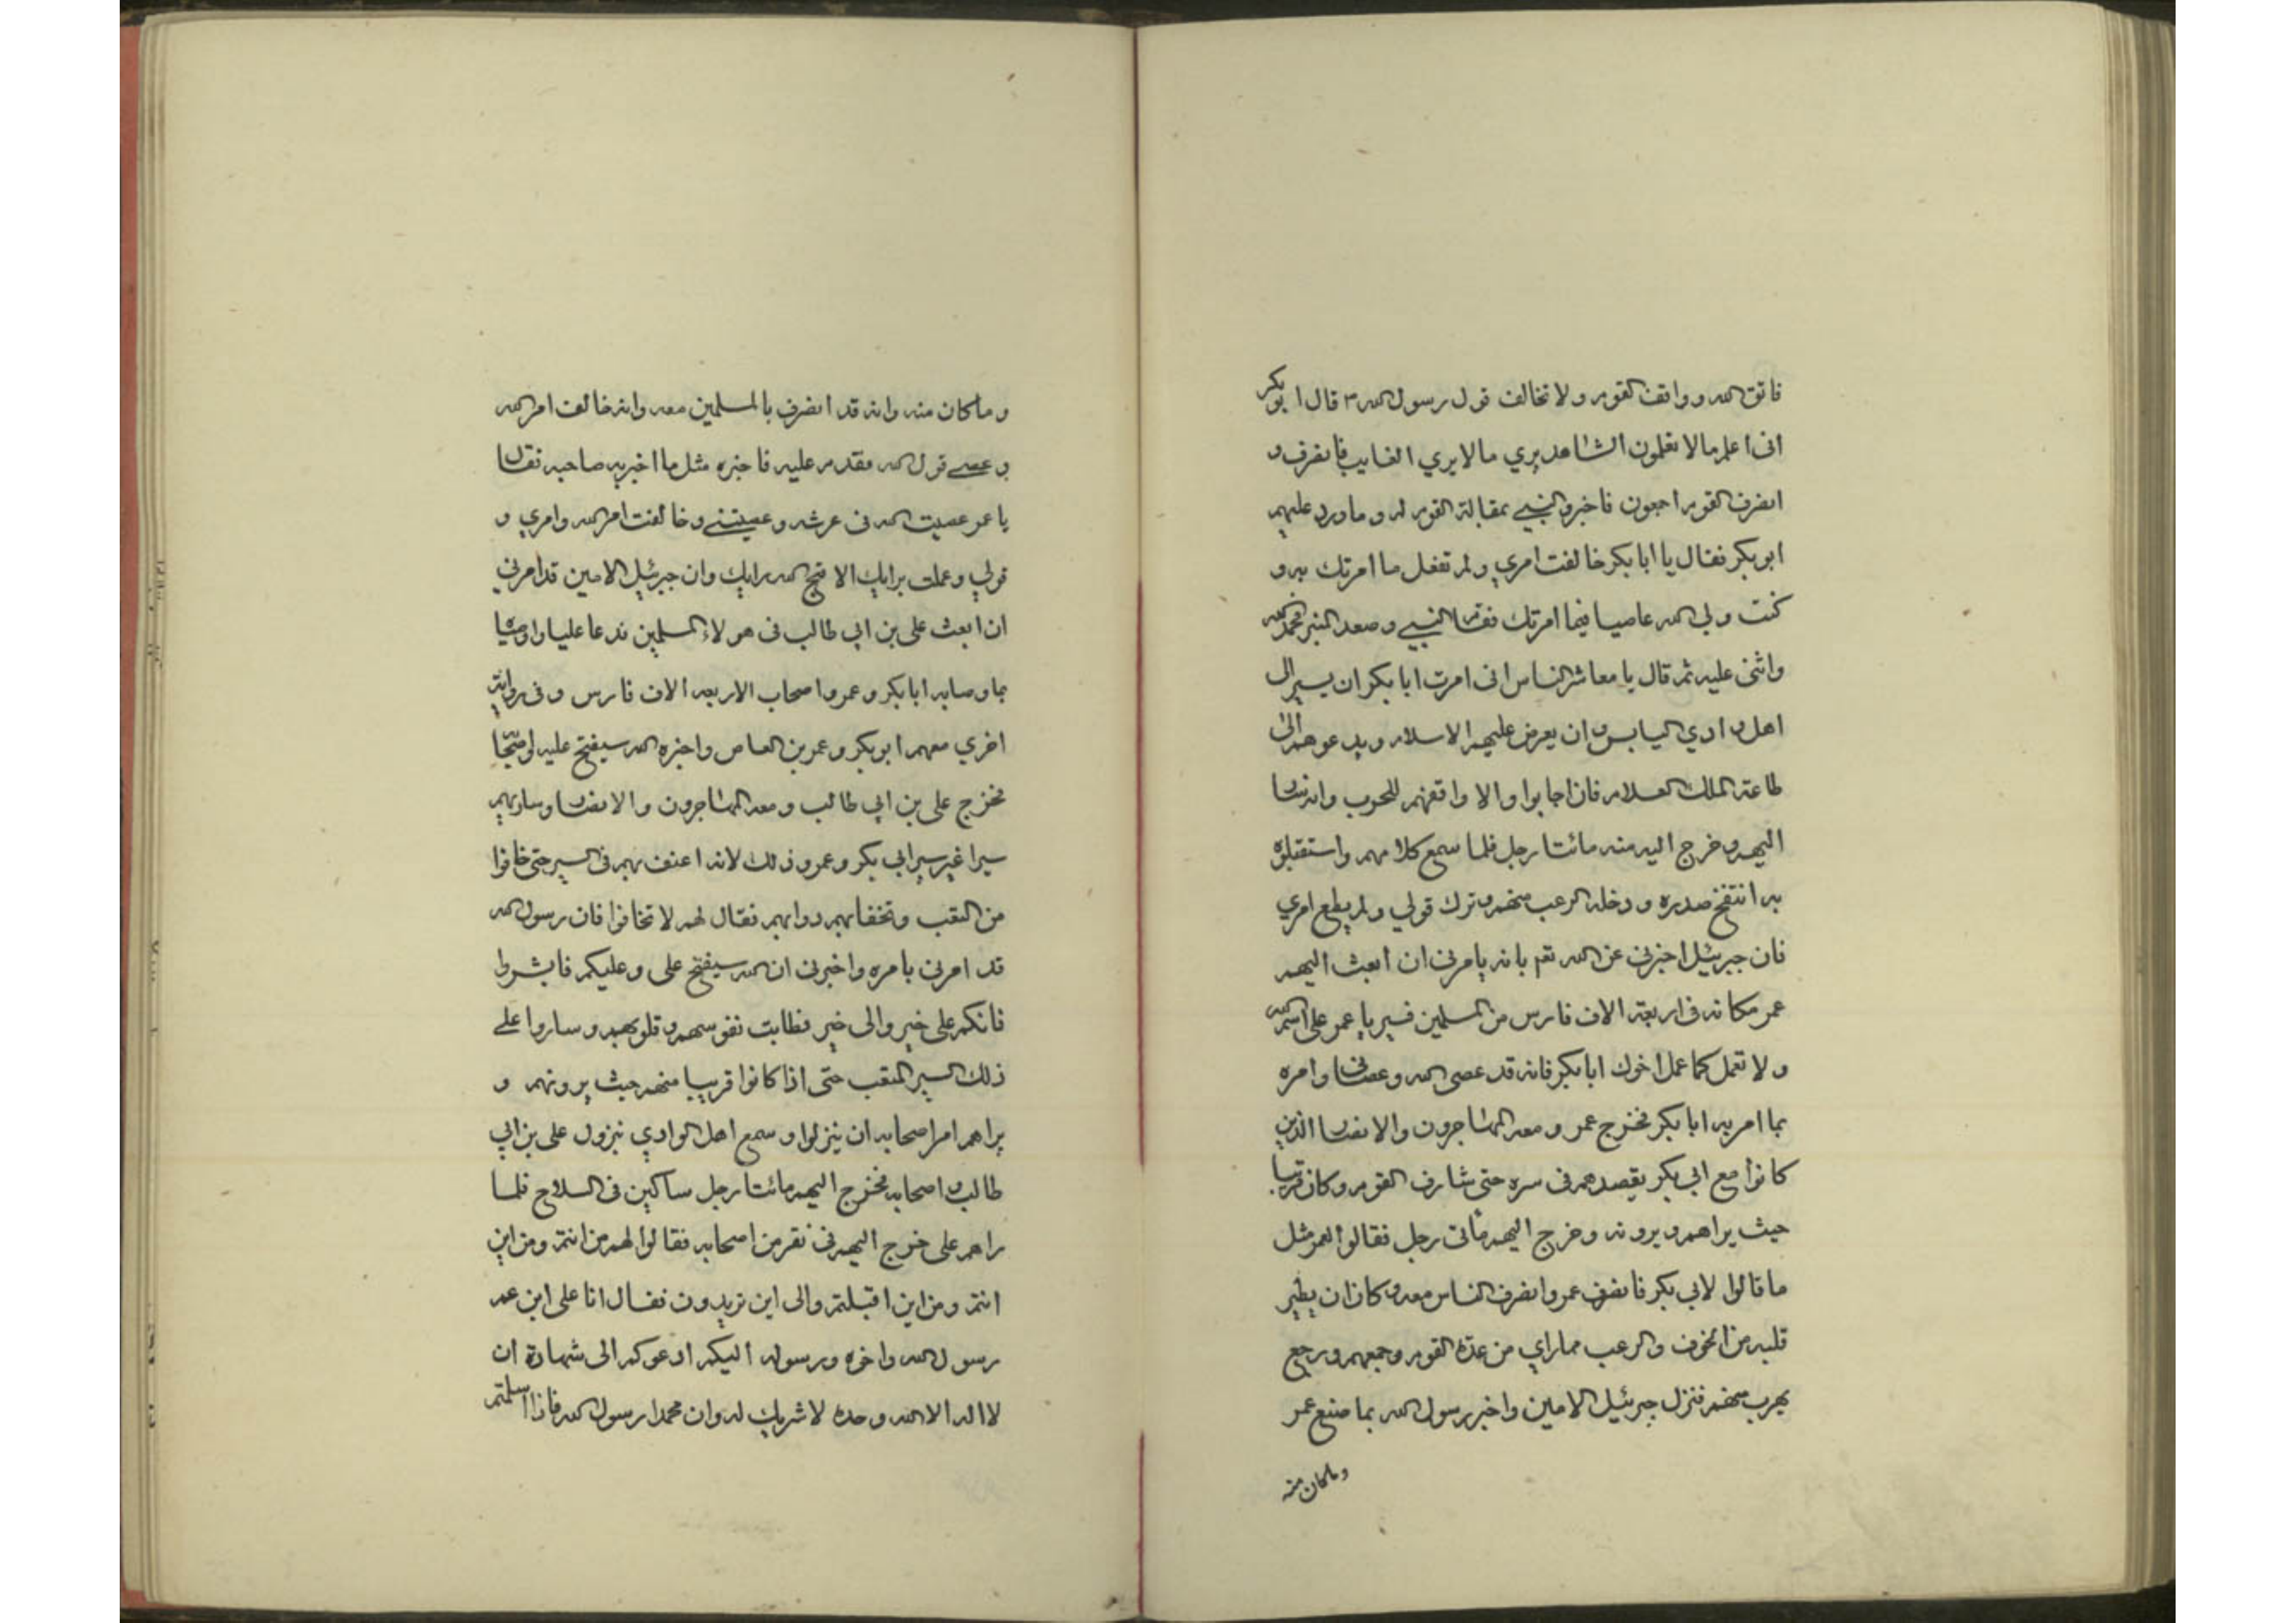 فاتق الله وواقف القوم ولا تخالف قول رسول الله ص قال ابو بكر
انى اعلم مالا تعلمون الشاهد يري مالا يري الغايب فانصرف و
انصرف القوم اجمعون فاخبر النبي بمقالة القوم له وما ورد عليهم
ابو بكر فقال يا ابا بكر خالفت امري ولم تفعل ما امرتك به و
كنت ولى الله عاصيا فيما امرتك فقام النبي وصعد المنبر فحمد الله
واثنى عليه ثم قال يا معاشر الناس انى امرت ابا بكر ان يسير الى
اهل وادي اليابس وان يعرض عليهم الاسلام ويدعوهم الى
طاعة الملك العلام فان اجابوا والا واقعهم للحرب وانه سار
اليهم وخرج اليه منه مائتا رجل فلما سمع كلامهم واستقبلوه
به انتفخ صدره ودخله الرعب منهم وترك قولي ولم يطع امري
فان جبرئيل اخبرنى عن الله تع بانه يامرنى ان ابعث اليهم
عمر مكانه فى اربعة الاف فارس من المسلمين فسير يا عمر على اسم الله
ولا تعمل كما عمل اخوك ابا بكر فانه قد عصى الله وعصانى وامره
بما امر به ابا بكر فخرج عمر ومعه المهاجرون والانصار الذين
كانوا مع ابي بكر يقصدهم فى سره حتى شارف القوم وكان قريبا
حيث يراهم ويرونه وخرج اليهم مأتى رجل فقالوا لعمر مثل
ما قالوا لابي بكر فانصرف عمر وانصرف الناس معه وكان ان يطير
قلبه من الخوف والرعب مما راي من عدة القوم وجمعهم ورجع
يهرب منهم فنزل جبرئيل الامين واخبر رسول الله بما صنع عمر
وماكان منه
وماكان منه وانه قد انصرف بالمسلمين معه وانه خالف امر الله
وعصے قول الله فقدم عليه فاخبره مثل ما اخبر به صاحبه فقال
يا عمر عصيت الله فى عرشه وعصيتنے وخالفت امر الله وامري و
قولي وعملت برايك الا قبح الله رايك وان جبرئيل الامين قد امرني
ان ابعث على بن ابي طالب فى هولاء المسلمين فدعا عليا واوصاه
بما وصا به ابا بكر وعمر واصحاب الاربعه الاف فارس وفى رواية
اخري معهم ابو بكر وعمر بن العاص واخبره الله سيفتح عليه
فخرج على بن ابي طالب ومعه المهاجرون والانصار وسار بهم
سيرا غير سير ابي بكر وعمر وذلك لانه اعنف بهم فى السير حتى خافوا
من التعب وتخفا بهم دوابهم فقال لهم لا تخافوا فان رسول الله
قد امرنى بامره واخبرنى ان الله سيفتح على وعليكم فابشروا
فانكم على خير والى خير فطابت نفوسهم وقلوبهم وساروا على
ذلك السير المتعب حتى اذا كانوا قريبا منهم حيث يرونهم و
يراهم امر اصحابه ان ينزلوا وسمع اهل الوادي بنزول على بن ابي
طالب واصحابه فخرج اليهم مائتا رجل ساكين فى السلاح فلما
راهم على خرج اليهم فى نفر من اصحابه فقالوا لهم من انتم ومن اين
انتم ومن اين اقبلتم والى اين تريدون فقال انا على ابن عم
رسول الله واخوه ورسوله اليكم ادعوكم الى شهادة ان
لا اله الا الله وحده لا شريك له وان محمدا رسول الله فاذا اسلمتم